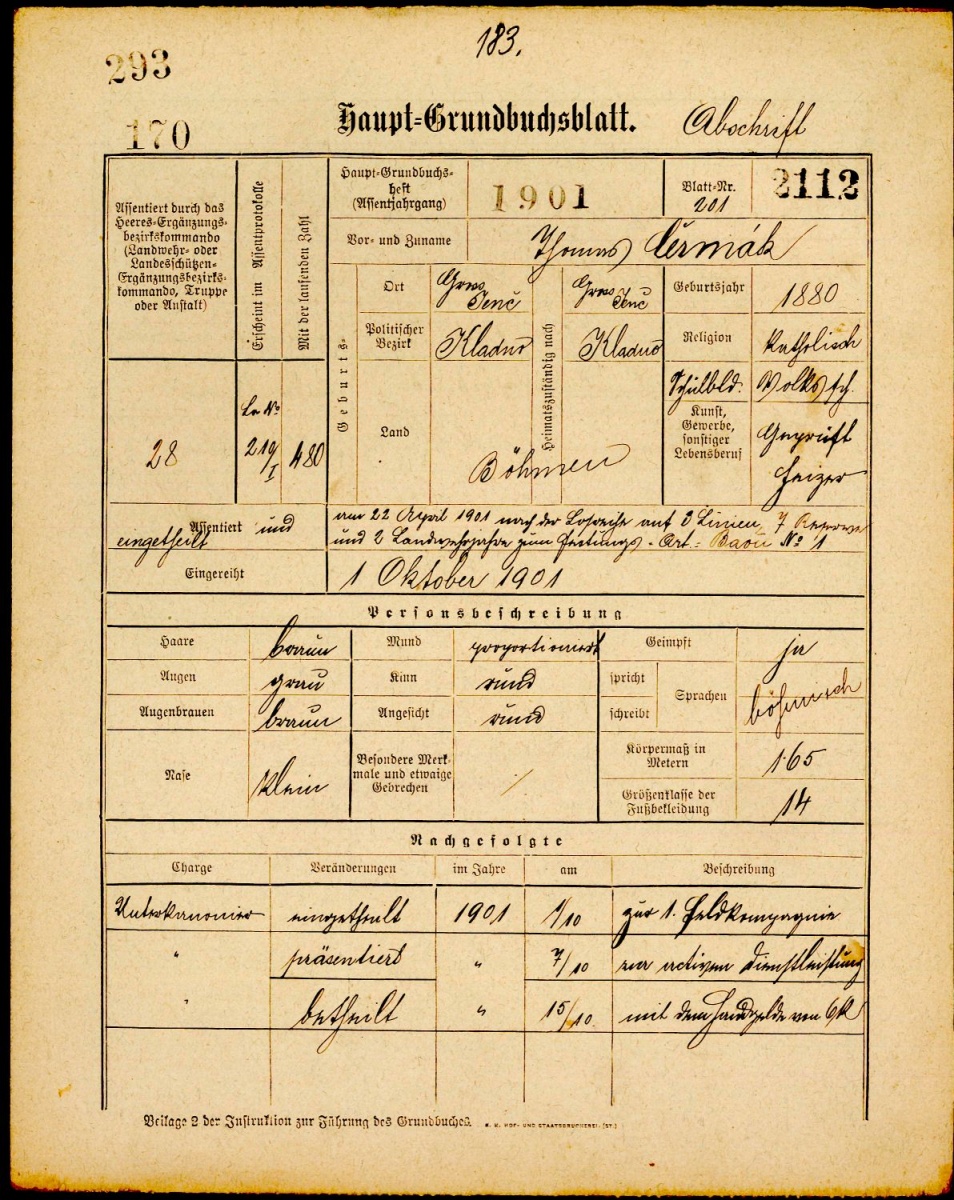 183.
293
170
Haupt-Grundbuchsblatt.
Abschrift
Assentiert durch das
Heeres-Ergänzungs-
bezirkskommando
(Landwehr- oder
Landesschützen-
Ergänzungsbezirks-
kommando, Truppe
oder Anstalt)
Erscheint im Assentprotokolle
Mit der laufenden Zahl
28
Lr No
219/I
480
Haupt-Grundbuchs-
heft
(Assentjahrgang)
1901
Blatt-Nr.
201
2112
Vor- und Zuname
Thomas Čermák
Geburts-
Ort
Gross
Jenč
Heimatszuständig nach
Gross
Jenč
Geburtsjahr
1880
Politischer
Bezirk
Kladno
Kladno
Religion
katholisch
Land
Böhmen
Schulbld.
Volkssch.
Kunst,
Gewerbe,
sonstiger
Lebensberuf
Geprüft
Heizer
Assentiert und
eingetheilt
am 22 April 1901 nach der Losreihe auf 3 Linien, 7 Reserve
und 2 Landwehrjahre zum Festungs-Art.- Baon No 1
Eingereiht
1 Oktober 1901
Personsbeschreibung
Haare
braun
Mund
proportioniert
Geimpft
ja
Augen
grau
Kinn
rund
spricht
schreibt
Sprachen
böhmisch
Augenbrauen
braun
Angesicht
rund
Nase
klein
Besondere Merk-
male und etwaige
Gebrechen
/
Körpermaß in
Metern
1·65
Größenklasse der
Fußbekleidung
14
Nachgefolgte
Charge
Veränderungen
im Jahre
am
Beschreibung
Unterkanonier eingetheilt 1901 1/10 zur 1. Feldkompagnie
" präsentiert " 7/10 zur activen Dienstleistung
" betheilt " 15/10 mit dem Handgelde von 6 K
Beilage 2 der Instruktion zur Führung des Grundbuches.
K. K. HOF- UND STAATSDRUCKEREI. (ST.)